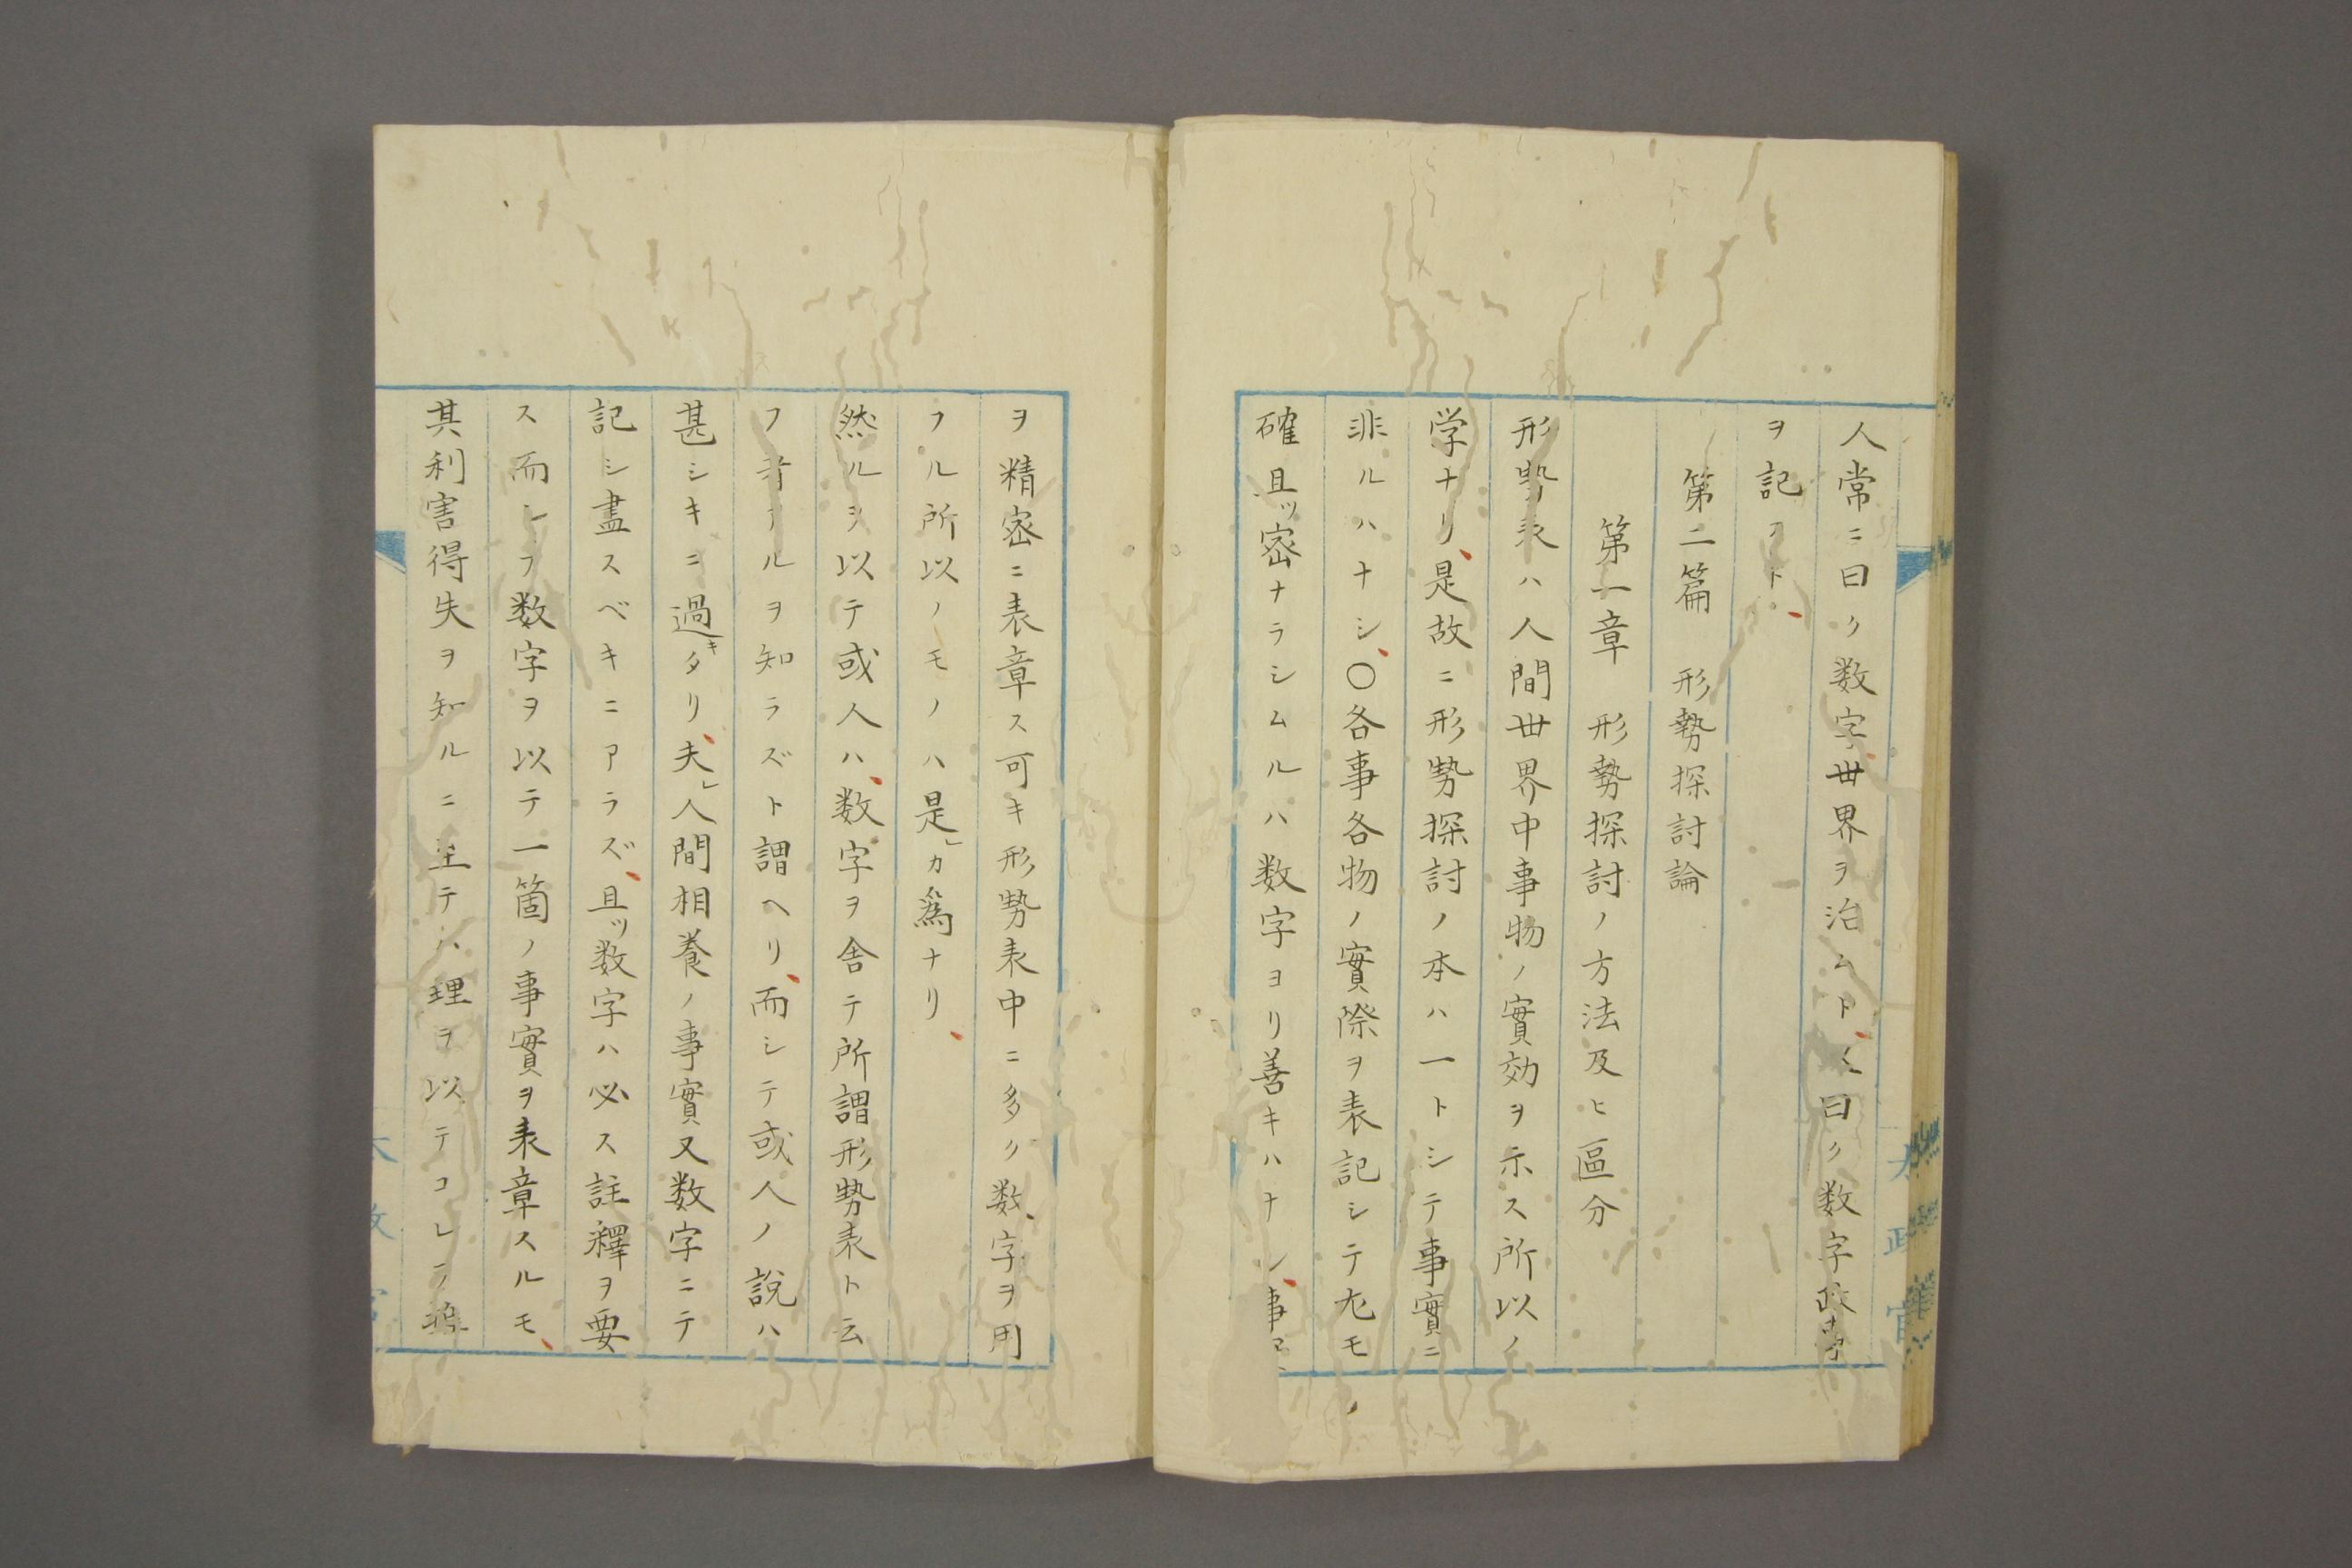 人常ニ曰ク数字、丗界ヲ治ムト、又曰ク数字政
ヲ記フト、
第二篇　形勢探討論
第一章　形勢探討ノ方法及ヒ區分
形勢表ハ人間丗界中事物ノ實効ヲ示ス所以ノ
学ナリ、是故ニ形勢探討ノ本ハ一トシテ事實ニ
非ルハナシ、〇各事各物ノ實際ヲ表記シテ尤モ
確且ッ密ナラシムルハ数字ヨリ善キハナシ、事
ヲ精密ニ表章ス可キ形勢表中ニ多ク数字ヲ用
フル所以ノモノハ是カ爲ナリ、
然ルヲ以テ或人ハ、数字ヲ舍テ所謂形勢表ト云
フ者アルヲ知ラズト謂ヘリ、而シテ或人ノ説ハ
甚シキニ過キタリ、夫レ人間相養ノ事實又数字ニテ
記シ盡スベキニアラズ、且ッ数字ハ必ス註釋ヲ要
ス而シテ数字ヲ以テ一箇ノ事實ヲ表章スルモ、
其利害得失ヲ知ルニ至テハ理ヲ以テコレヲ
太政官